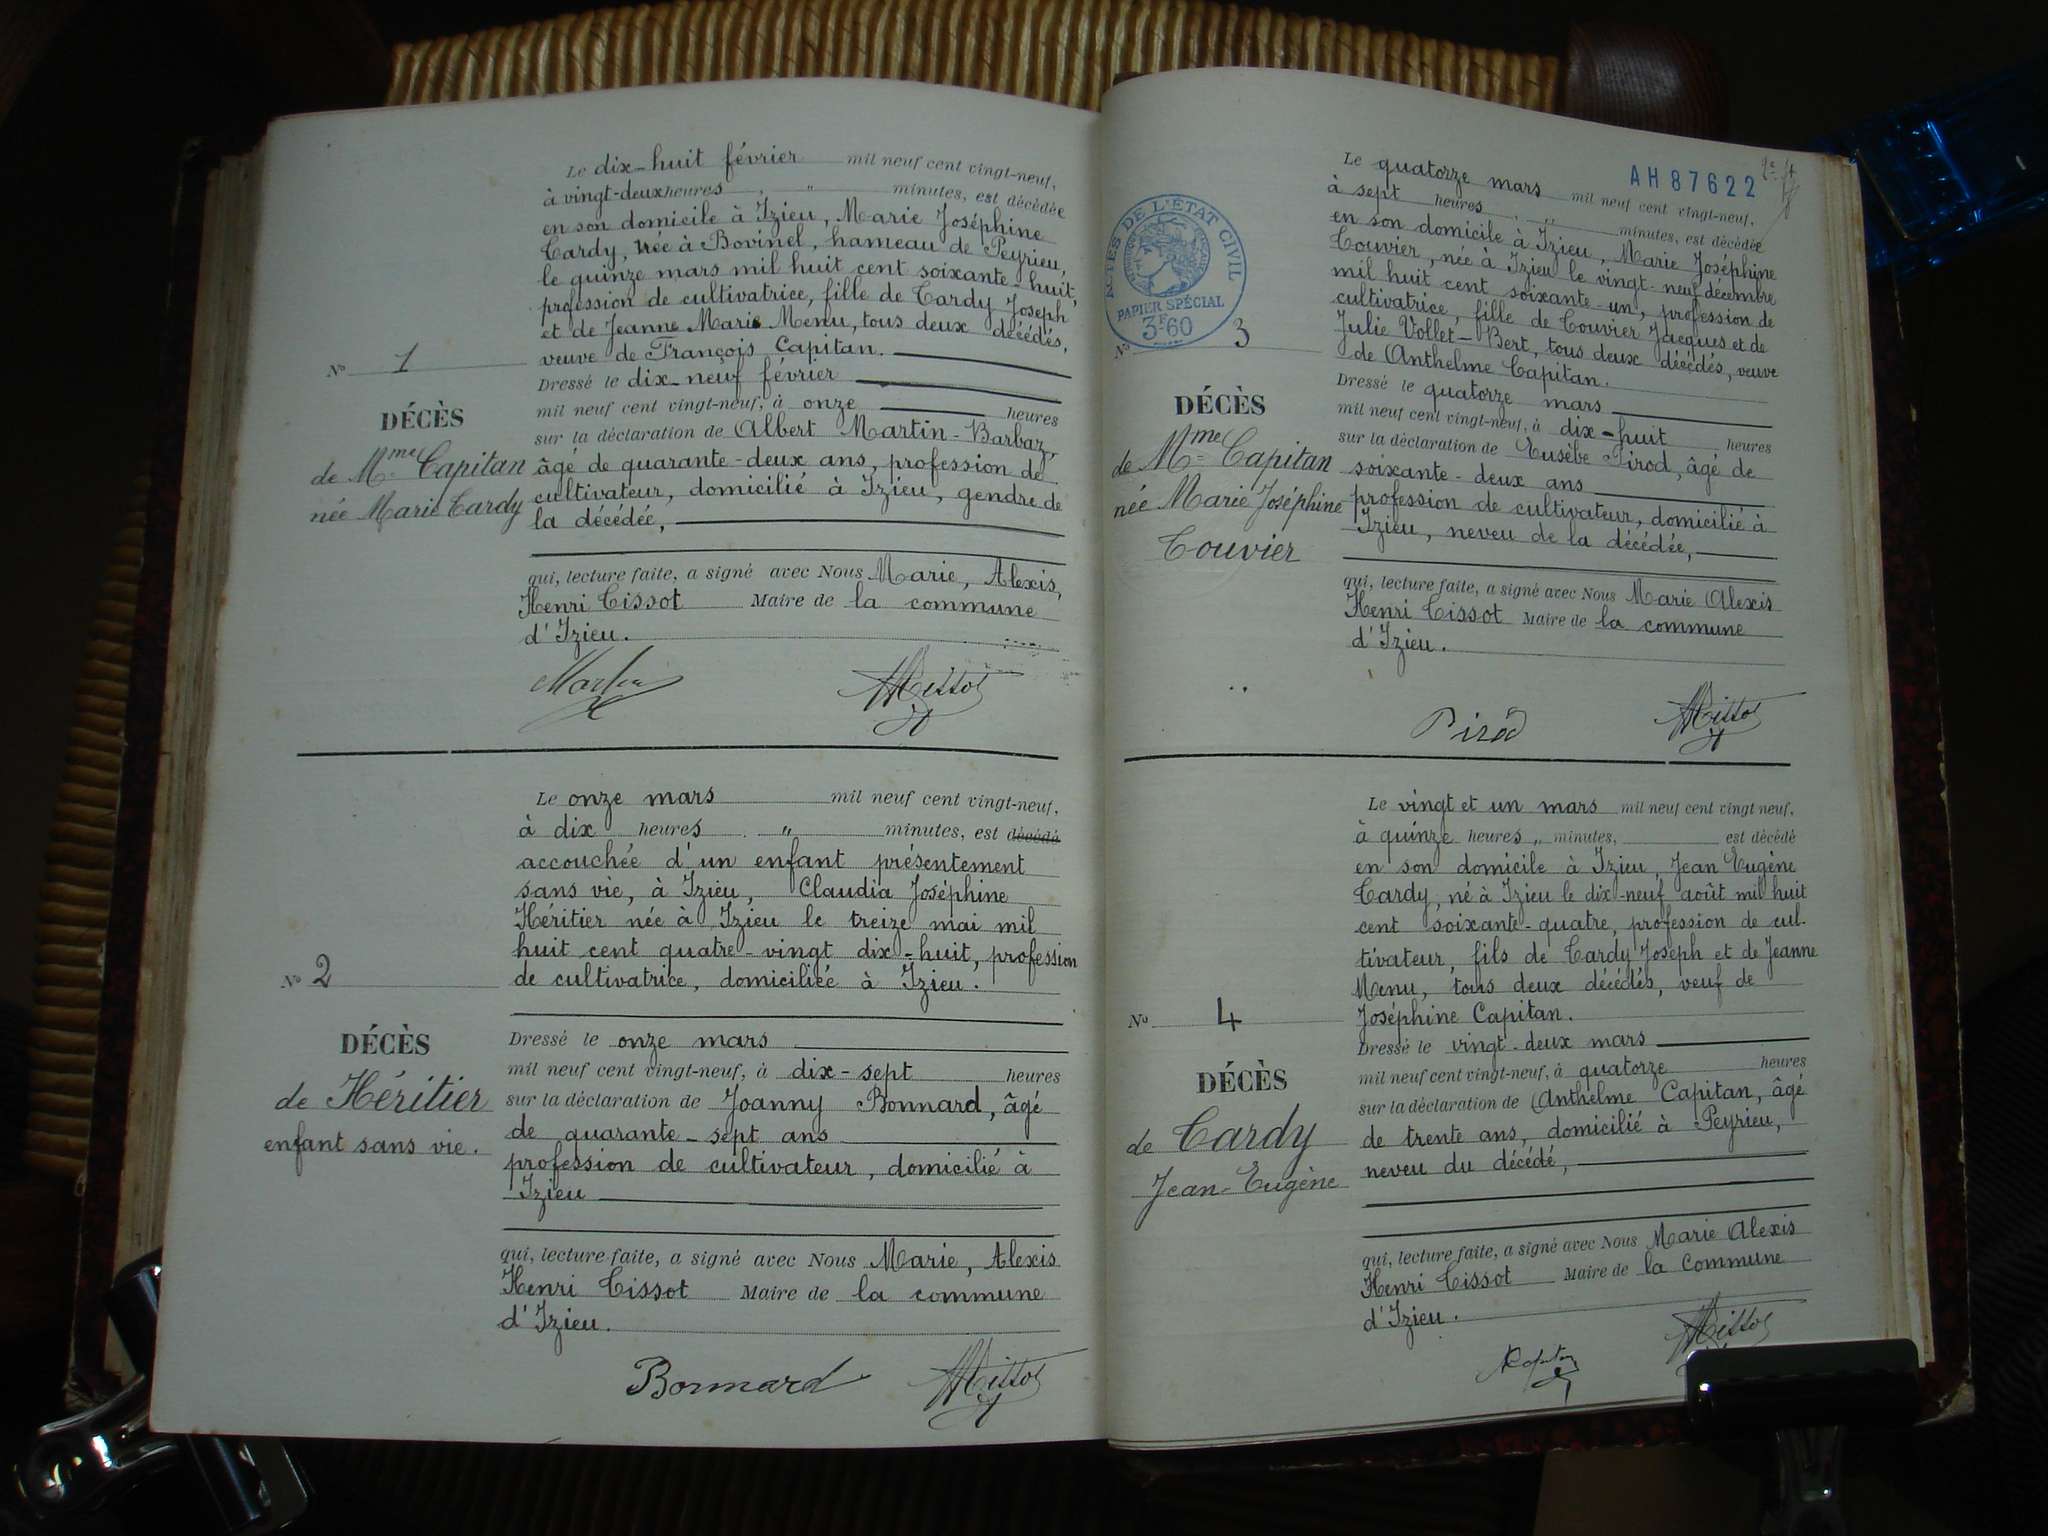 Le dix-huit février mil neuf cent vingt-neuf,
à vingt-deux heures , " minutes, est décédée
en son domicile à Izieu, Marie Joséphine
Tardy, née à Bovinel, hameau de Peyrieu,
le quinze mars mil huit cent soixante-huit,
profession de cultivatrice, fille de Tardy Joseph
et de Jeanne Marie Menu, tous deux décédés,
veuve de François Capitan.
Nº 1
Dressé le dix-neuf février
mil neuf cent vingt-neuf, à onze heures
sur la déclaration de Albert Martin-Barbaz,
âgé de quarante-deux ans, profession de
cultivateur, domicilié à Izieu, gendre de
la décédée,
DÉCÈS
de Mme Capitan
née Marie Tardy
qui, lecture faite, a signé avec Nous Marie, Alexis,
Henri Tissot Maire de la commune
d'Izieu.
Martin
HTissot
Le onze mars mil neuf cent vingt-neuf,
à dix heures . " minutes, est décédé
accouchée d'un enfant présentement
sans vie, à Izieu, Claudia Joséphine
Héritier née à Izieu le treize mai mil
huit cent quatre-vingt dix-huit, profession
de cultivatrice, domiciliée à Izieu.
Nº 2
Dressé le onze mars
mil neuf cent vingt-neuf, à dix-sept heures
sur la déclaration de Joanny Bonnard, âgé
de quarante-sept ans
profession de cultivateur, domicilié à
Izieu
DÉCÈS
de Héritier
enfant sans vie.
qui, lecture faite, a signé avec Nous Marie, Alexis
Henri Tissot Maire de la commune
d'Izieu.
Bonnard
HTissot
AH87622
ACTES DE L'ÉTAT CIVIL
PAPIER SPÉCIAL
3F60
Le quatorze mars mil neuf cent vingt-neuf,
à sept heures , " minutes, est décédée
en son domicile à Izieu, Marie Joséphine
Touvier, née à Izieu le vingt-neuf décembre
mil huit cent soixante-un, profession de
cultivatrice, fille de Touvier Jacques et de
Julie Vollet-Bert, tous deux décédés, veuve
de Anthelme Capitan.
Nº 3
Dressé le quatorze mars
mil neuf cent vingt-neuf, à dix-huit heures
sur la déclaration de Eusèbe Pirod, âgé de
soixante-deux ans
profession de cultivateur, domicilié à
Izieu, neveu de la décédée,
DÉCÈS
de Mme Capitan
née Marie Joséphine
Touvier
qui, lecture faite, a signé avec Nous Marie Alexis
Henri Tissot Maire de la commune
d'Izieu.
Pirod
HTissot
Le vingt et un mars mil neuf cent vingt neuf,
à quinze heures " minutes, est décédé
en son domicile à Izieu, Jean Eugène
Tardy, né à Izieu le dix-neuf août mil huit
cent soixante-quatre, profession de cul-
tivateur, fils de Tardy Joseph et de Jeanne
Menu, tous deux décédés, veuf de
Joséphine Capitan.
Nº 4
Dressé le vingt-deux mars
mil neuf cent vingt-neuf, à quatorze heures
sur la déclaration de Anthelme Capitan, âgé
de trente ans, domicilié à Peyrieu,
neveu du décédé,
DÉCÈS
de Tardy
Jean-Eugène
qui, lecture faite, a signé avec Nous Marie Alexis
Henri Tissot Maire de la Commune
d'Izieu.
ACapitan
HTissot